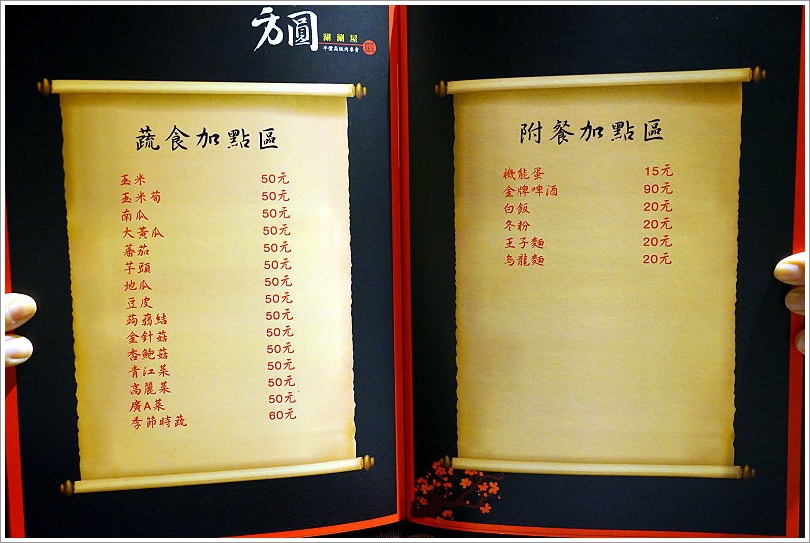 方圓
涮涮屋
平價高級肉專賣
蔬食加點區
玉米 50元
玉米筍 50元
南瓜 50元
大黃瓜 50元
蕃茄 50元
芋頭 50元
地瓜 50元
豆皮 50元
蒟蒻結 50元
金針菇 50元
杏鮑菇 50元
青江菜 50元
高麗菜 50元
廣A菜 50元
季節時蔬 60元
附餐加點區
機能蛋 15元
金牌啤酒 90元
白飯 20元
冬粉 20元
王子麵 20元
烏龍麵 20元